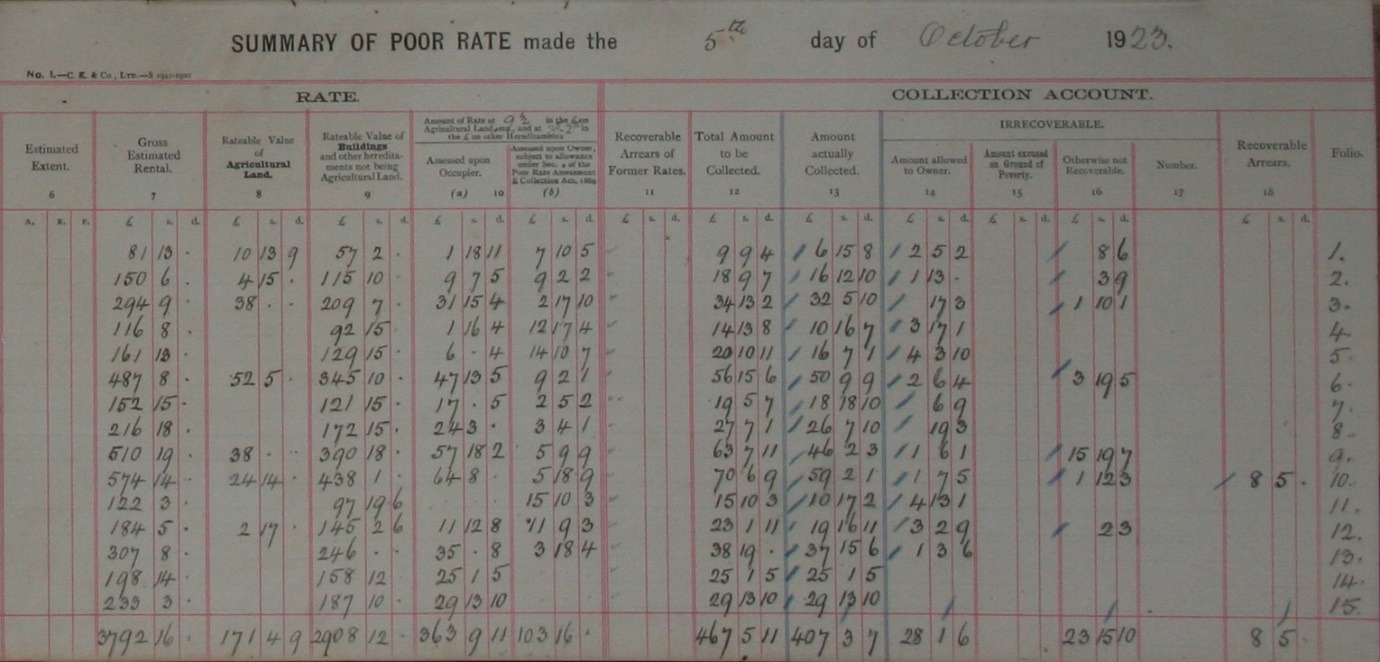 SUMMARY OF POOR RATE made the 5th day of October 1923.
No. 1.—C. K. & Co., LTD.—S
RATE. COLLECTION ACCOUNT.
Estimated Extent. 6
Gross Estimated Rental. 7
Rateable Value of Agricultural Land. 8
Rateable Value of Buildings and other heredita- ments not being Agricultural Land. 9
Amount of Rate at in the £ on Agricultural Land, and at in the £ on other Hereditaments
Assessed upon Occupier. (a) 10
Assessed upon Owner, subject to allowance under Sec. 4 of the Poor Rate Assessment & Collection Act, 1869 (b)
Recoverable Arrears of Former Rates. 11
Total Amount to be Collected. 12
Amount actually Collected. 13
IRRECOVERABLE.
Amount allowed to Owner. 14
Amount excused on Ground of Poverty. 15
Otherwise not Recoverable. 16
Number. 17
Recoverable Arrears. 18
Folio.
A. R. P. £ s. d. £ s. d. £ s. d. £ s. d. £ s. d. £ s. d. £ s. d. £ s. d. £ s. d. £ s. d. £ s. d.
81 13 . 10 13 9 57 2 . 1 18 11 7 10 5 9 9 4 6 15 8 2 5 2 8 6 1.
150 6 . 4 15 . 115 10 . 9 7 5 9 2 2 18 9 7 16 12 10 1 13 . 3 9 2.
294 9 . 38 . . 209 7 . 31 15 4 2 17 10 34 13 2 32 5 10 17 3 1 10 1 3.
116 8 . 92 15 . 1 16 4 12 17 4 14 13 8 10 16 7 3 17 1 4.
161 13 . 129 15 . 6 . 4 14 10 7 20 10 11 16 7 1 4 3 10 5.
487 8 . 52 5 . 345 10 . 47 13 5 9 2 1 56 15 6 50 9 9 2 6 4 3 19 5 6.
152 15 . 121 15 . 17 . 5 2 5 2 19 5 7 18 18 10 6 9 7.
216 18 . 172 15 . 24 3 . 3 4 1 27 7 1 26 7 10 19 3 8.
510 19 . 38 . . 390 18 . 57 18 2 5 9 9 63 7 11 46 2 3 1 6 1 15 19 7 9.
574 14 . 24 14 . 438 1 . 64 8 . 5 18 9 70 6 9 59 2 1 1 7 5 1 12 3 8 5 . 10.
122 3 . 97 19 6 15 10 3 15 10 3 10 17 2 4 13 1 11.
184 5 . 2 17 . 145 2 6 11 12 8 11 9 3 23 1 11 19 16 11 3 2 9 2 3 12.
307 8 . 246 . . 35 . 8 3 18 4 38 19 . 37 15 6 1 3 6 13.
198 14 . 158 12 . 25 1 5 25 1 5 25 1 5 14.
233 3 . 187 10 . 29 13 10 29 13 10 29 13 10 15.
3792 16 . 171 4 9 2908 12 . 363 9 11 103 16 . 467 5 11 407 3 7 28 1 6 23 15 10 8 5 .